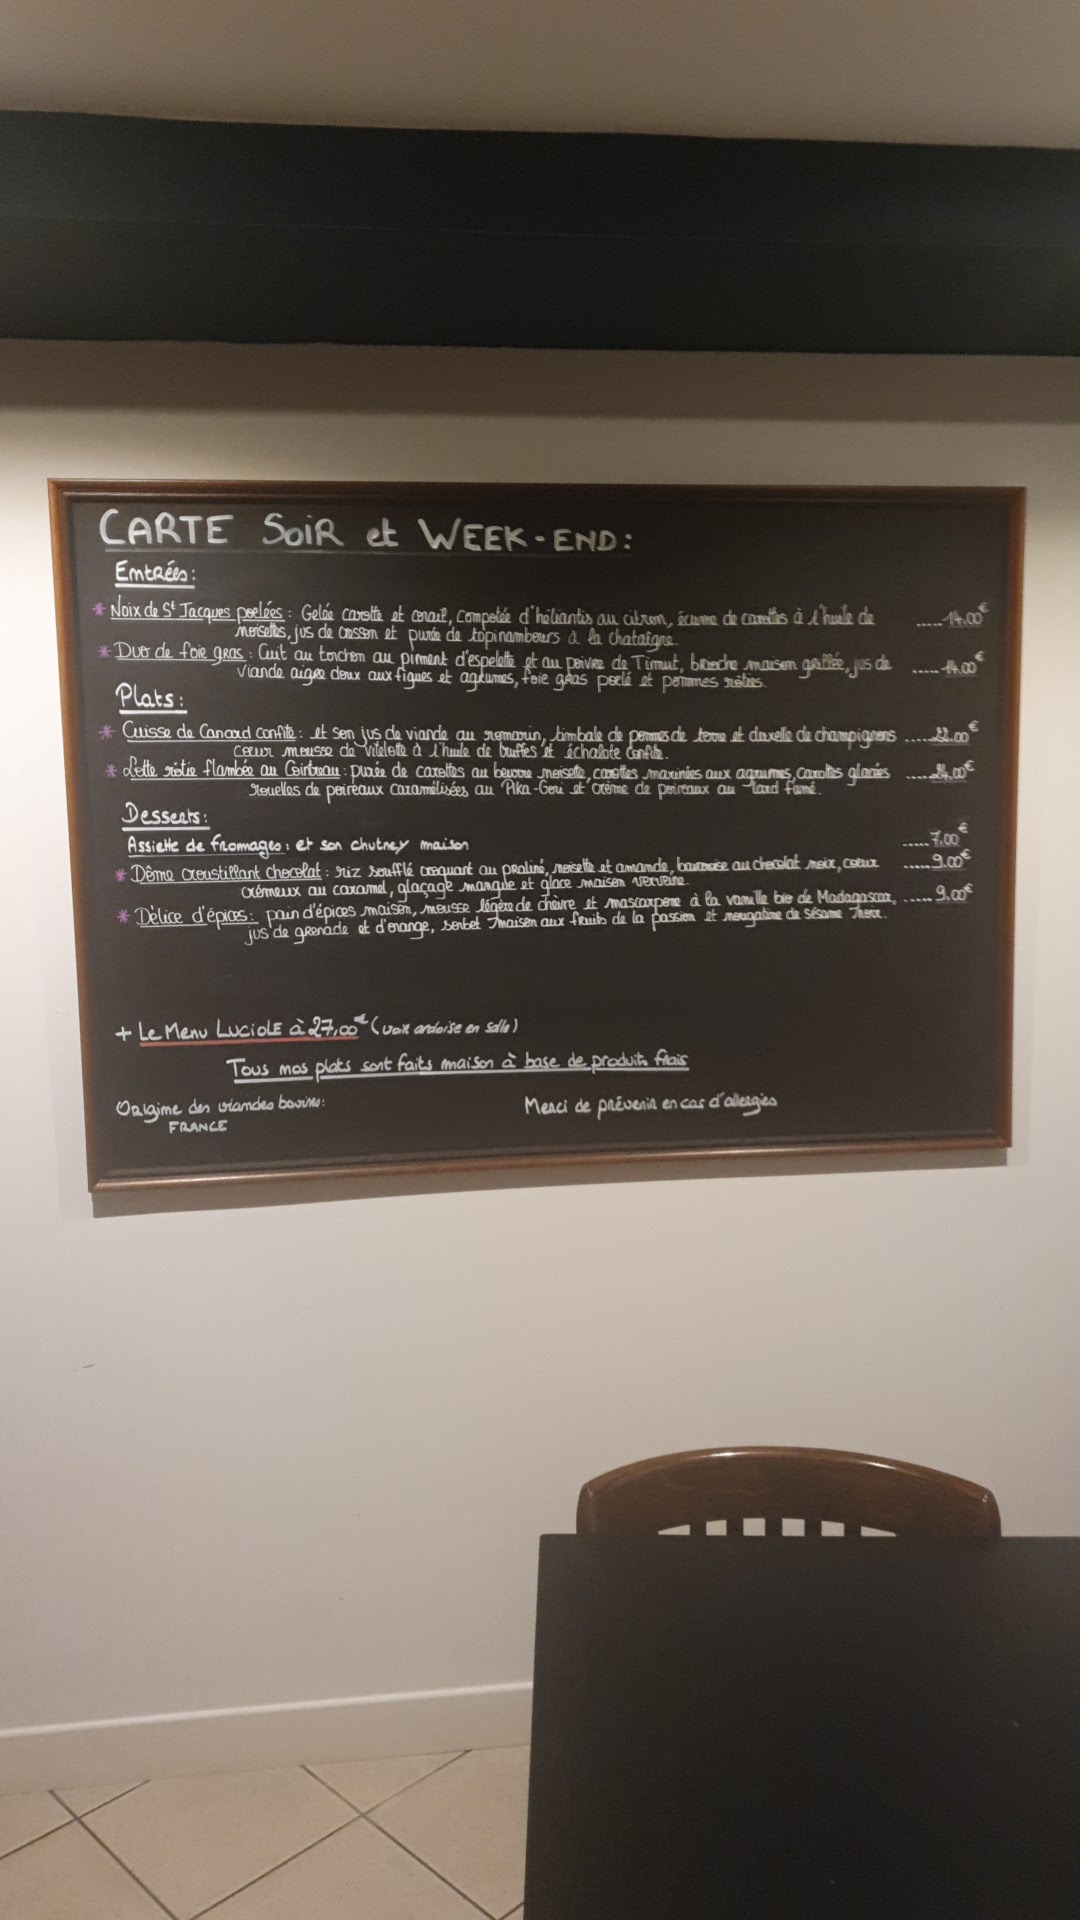 CARTE SOIR et WEEK-END:
Entrées:
* Noix de St Jacques poelées: Gelée carotte et corail, compotée d'héliantis au citron, écume de carottes à l'huile de ..... 14.00€
noisettes, jus de cresson et purée de topinambours à la chataîgne.
* Duo de foie gras: Cuit au torchon au piment d'espelette et au poivre de Timut, brioche maison grillée, jus de ..... 14.00€
viande aigre doux aux figues et agrumes, foie gras poelé et pommes rôties.
Plats:
* Cuisse de Canard confite: et son jus de viande au romarin, timbale de pommes de terre et duxelle de champignons ..... 22.00€
coeur mousse de vitelote à l'huile de truffes et échalote confite.
* Lotte rôtie flambée au Cointreau: purée de carottes au beurre noisette, carottes marinées aux agrumes, carottes glacées ..... 24.00€
rouelles de poireaux caramélisées au Pika-Gori et crème de poireaux au lard fumé.
Desserts:
Assiette de fromages: et son chutney maison ..... 7.00€
* Dôme croustillant chocolat: riz soufflé croquant au praliné, noisette et amande, bavaroise au chocolat noir, coeur ..... 9.00€
crémeux au caramel, glaçage mangue et glace maison verveine.
* Délice d'épices: pain d'épices maison, mousse légère de chèvre et mascarpone à la vanille bio de Madagascar, ..... 9.00€
jus de grenade et d'orange, sorbet maison aux fruits de la passion et nougatine de sésame noir.
+ Le Menu LUCIOLE à 27,00€ (voir ardoise en salle)
Tous mos plats sont faits maison à base de produits frais
Origime des viandes bovines:
FRANCE
Merci de prévenir en cas d'allergies